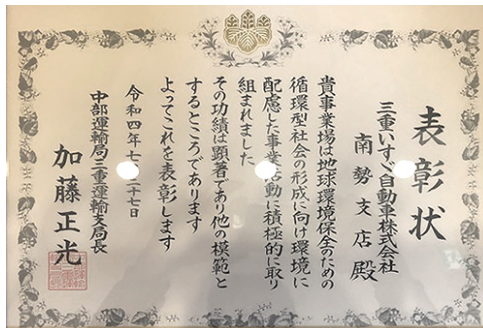 表彰状
三重いすゞ自動車株式会社
南勢支店殿
貴事業場は地球環境保全のための
循環型社会の形成に向け環境に
配慮した事業活動に積極的に取り
組まれました
その功績は顕著であり他の模範と
するところであります
よってこれを表彰します
令和四年七月二十七日
中部運輸局三重運輸支局長
加藤正光